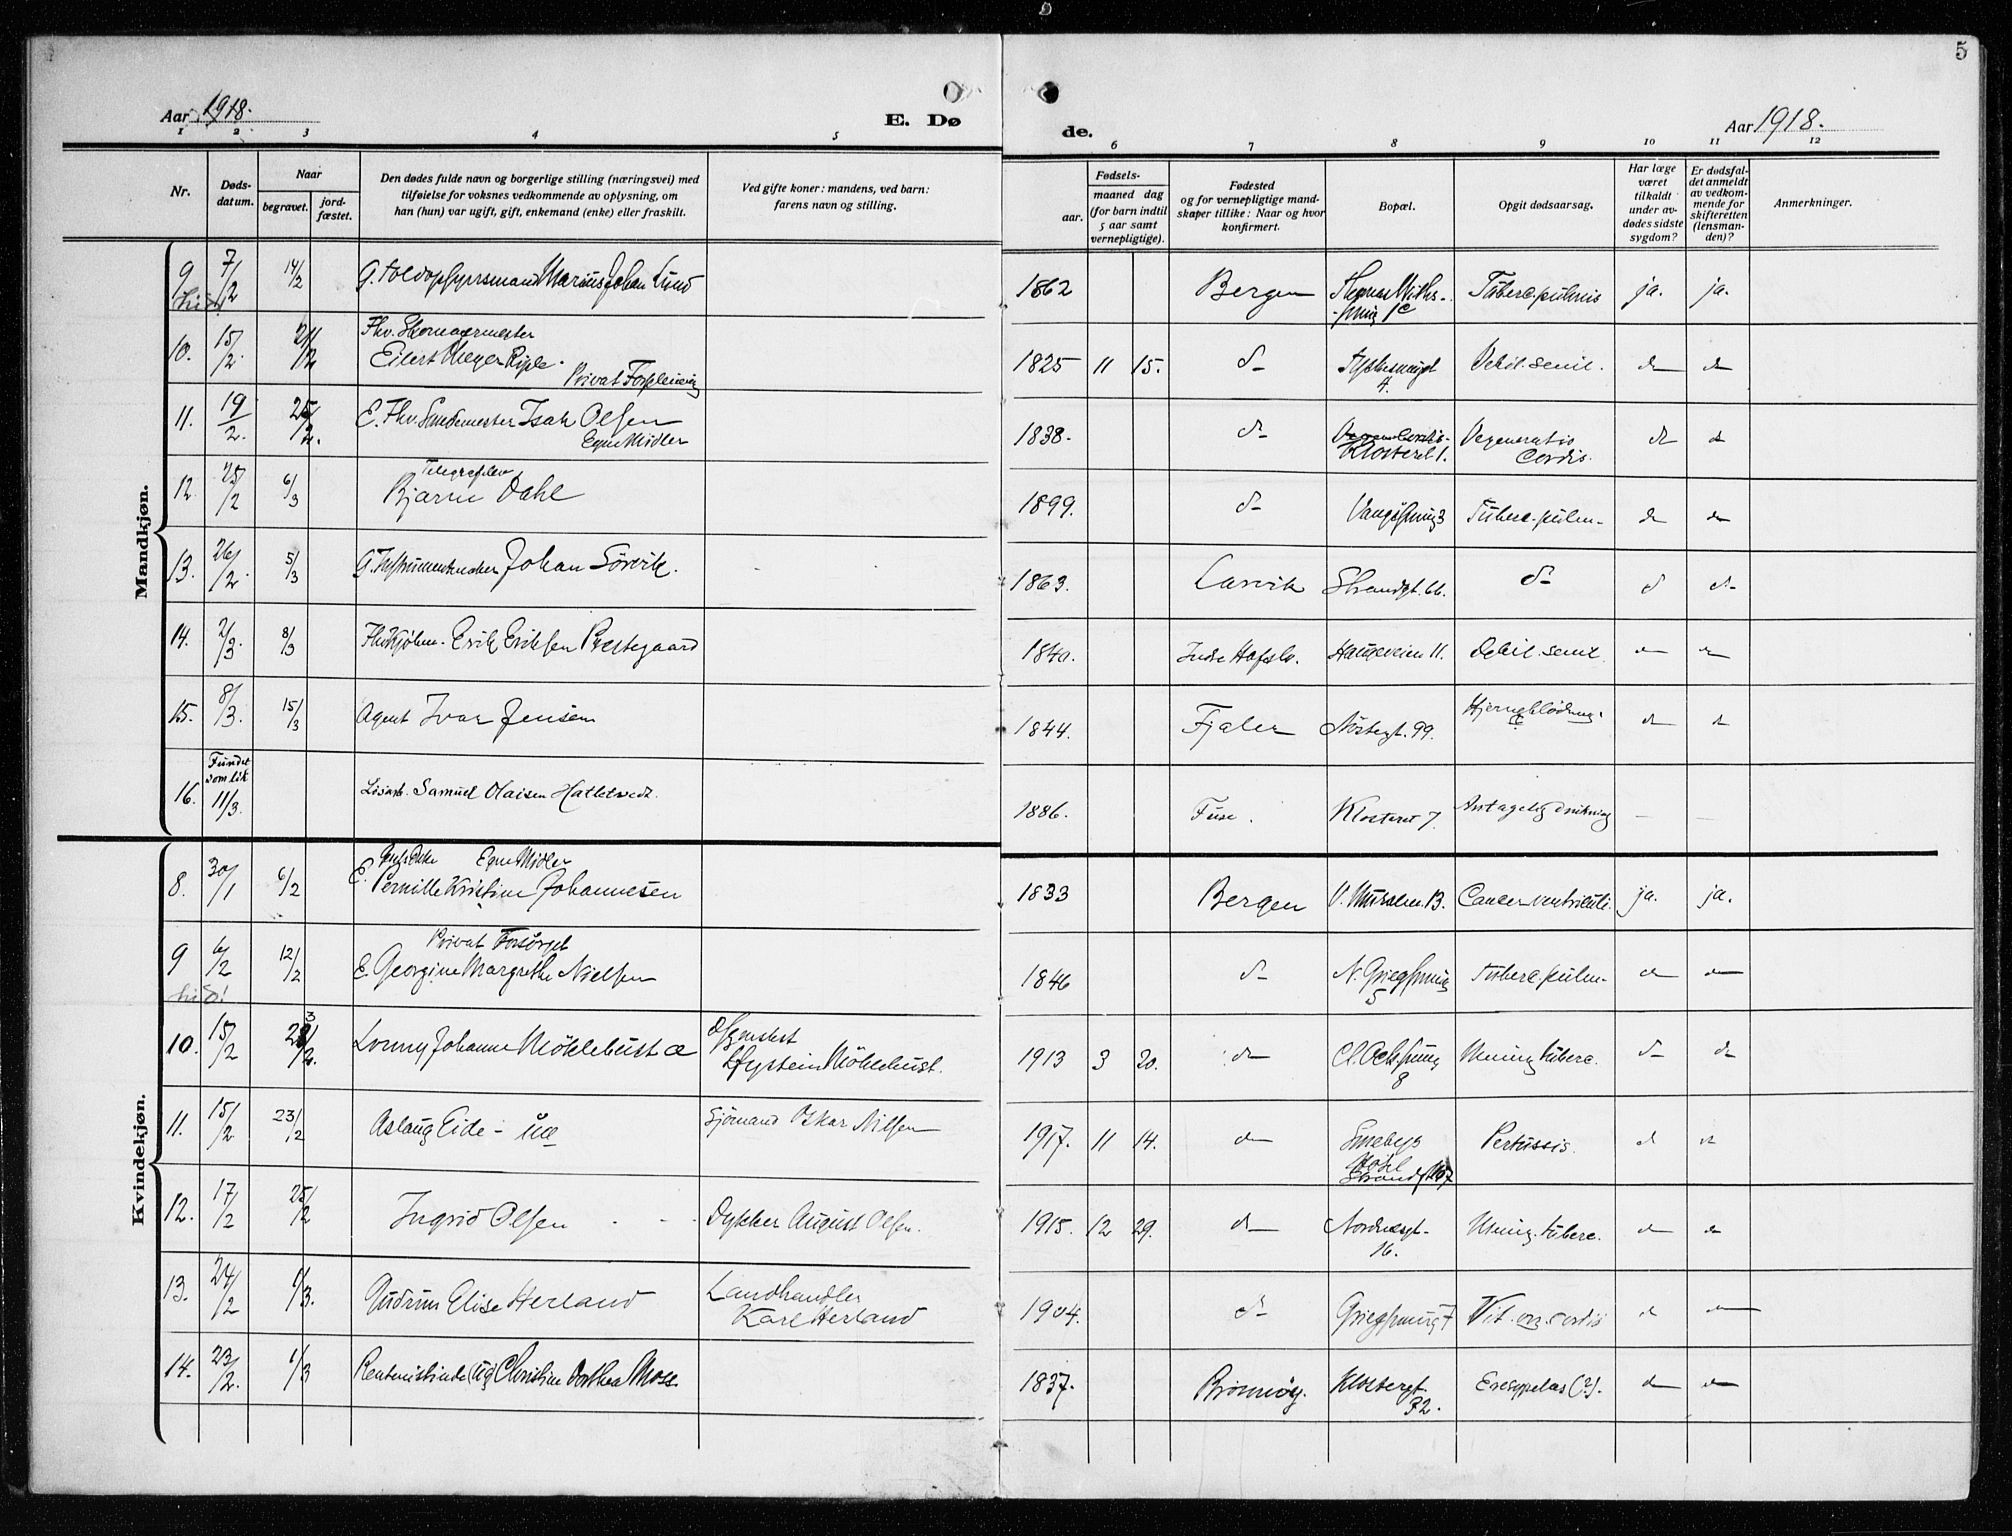 5
Aar 1918.
E. Dø
de.
Aar 1918.
1 2 3 4 5 6 7 8 9 10 11 12
Nr.
Døds-
datum.
Naar
begravet.
jord-
fæstet.
Den dødes fulde navn og borgerlige stilling (næringsvei) med
tilføielse for voksnes vedkommende av oplysning, om
han (hun) var ugift, gift, enkemand (enke) eller fraskilt.
Ved gifte koner: mandens, ved barn:
farens navn og stilling.
Fødsels-
aar.
maaned dag
(for barn indtil
5 aar samt
vernepligtige).
Fødested
og for vernepligtige mand-
skaper tillike: Naar og hvor
konfirmert.
Bopæl.
Opgit dødsaarsag.
Har læge
været
tilkaldt
under av-
dødes sidste
sygdom?
Er dødsfal-
det anmeldt
av vedkom-
mende for
skifteretten
(lensman-
den)?
Anmerkninger.
Mandkjøn.
9 7/2 14/2 G. Toldopsynsmand Marius Johan Lund 1862 Bergen 1c Taberc. pulmis ja. ja.
10. 15/2. 21/2 Fhv. Skomagermester
Eilert Meyer Riple.
Privat Forpleining
1825 11 15. d- 4. Debil. senil. do do
11. 19/2. 25/2. E. Fhv. Smedemester Isak Olsen
Egne Midler
1838. d- Klosteret 1. Degeneratio
Cordis. d d
12. 25/2 6/3 Telegrafelev
Bjarne Dahl 1899. d- 3 Tuberc. pulm- d d
13. 26/2. 5/3 G. Instrumentmaker Johan Sörvik. 1863. Larvik Strandgt. 66. d- d d-
14. 2/3. 8/3 Erik Eriksen Prestegaard 1840. Indre Hafslo. Haugeveien 11. Debil. senil. d d
15. 8/3. 15/3 Agent Ivar Jensen 1844. Fjaler Nöstegt. 99. Hjerneblödning. d d
16. Fundet
som lik
11/3. Lösarb. Samuel Olaisen Hatletvedt. 1886. Fuse. Klosteret 7. Antagelig drukning — —
Kvindekjøn.
8. 30/1 6/2 Egne Midler
E. Pernille Kristine Johannesen 1833 Bergen 13. Cancer ventriculi. ja. ja.
9 6/2 12/2 Privat Forsörget
E. Georgine Margrethe Nielsen 1846 d- 5 Tuberc. pulm- d d
10. 15/2 Lonny Johanne Möklebust 1913 3 20. d- 8 Mening. tuberc. d- d
Möklebust.
11. 15/2 23/2 Aslaug Eide - Sjömand Oskar Nilsen 1917. 11 14. d Smebys
Hotel
Strandgt. Pertussis. d d
12. 17/2 25/2 Ingrid Olsen Dykker August Olsen. 1915. 12 29. d- Nordnesgt.
16. Mening. tuberc. d d
13. 24/2 1/3. Gudrun Elise Herland Landhandler
Karl Herland 1904. d- 7 Vit. org. cordis d d
14. 23/2. 1/3 Rentenistinde (ug) Christine Dorthea Moss 1837. Brönnöy. Klostergt.
32. Eresypelas (?). d d